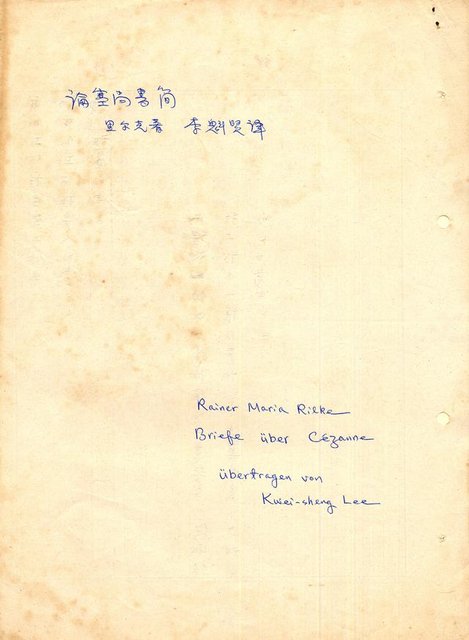 论塞尚书简
里尔克著 李魁贤译
Rainer Maria Rilke
Briefe über Cézanne
übertragen von
Kuei-sheng Lee